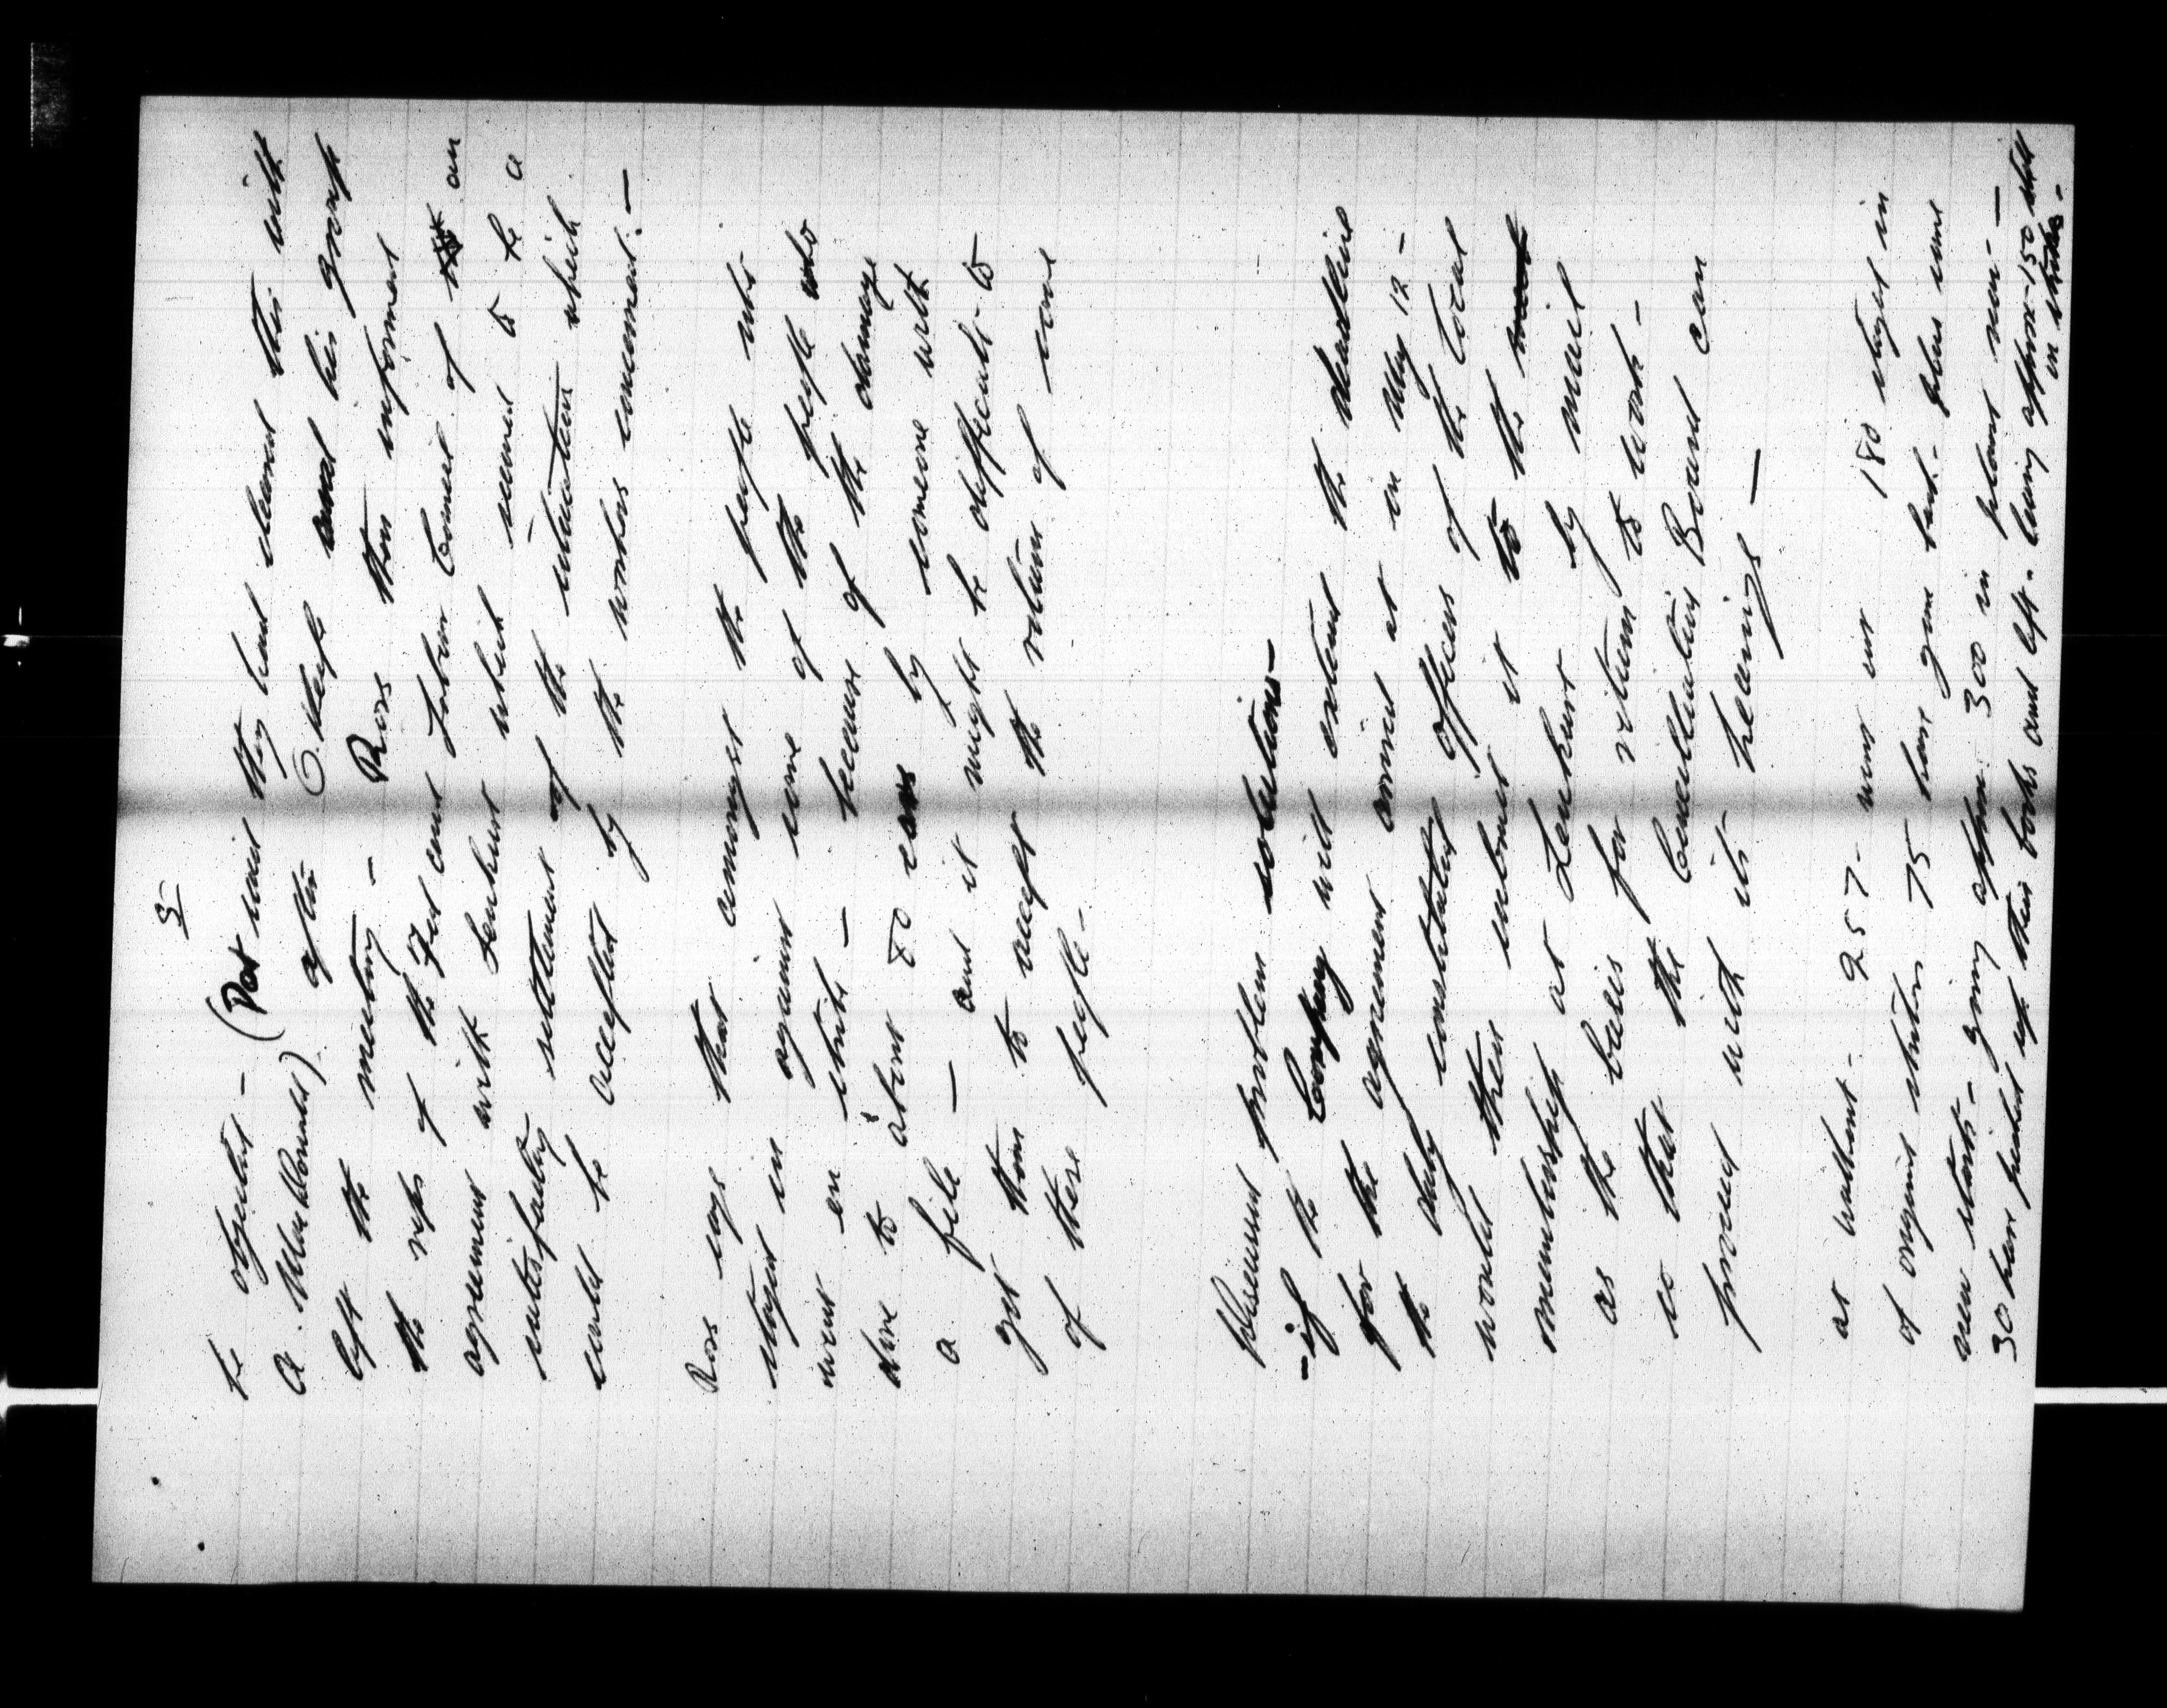 5
be objected - (Pat said they had cleared this with
A. MacDonald) after O'Keefe and his group
left the meeting - Ross then informed
the reps of the Fed and Labor Council of an
agreement with Lenkurt which seemed to be a
satisfactory settlement of the situation which
could be accepted by the workers concerned. -
Ross says that amongst the people who
stayed in against some of the people who
went on strike - because of the damage
done to about 80 cars by someone with
a file - and it might be difficult to
get them to accept the return of some
of these people -
Discussed problem solutions -
- if the Company will extend the deadline
for the agreement arrived at on May 12 -
the duly constituted officers of the Local
would then submit it to the
membership at Lenkurt by mail
as the basis for return to work -
so that the Conciliation Board can
proceed with its hearings -
at walkout - 257 - went out 180 stayed in
of original strikers 75 have gone back - plus some
new starts - giving approx. 300 in plant now -
30 have picked up their books and left - leaving approx - 150 still
in strike -